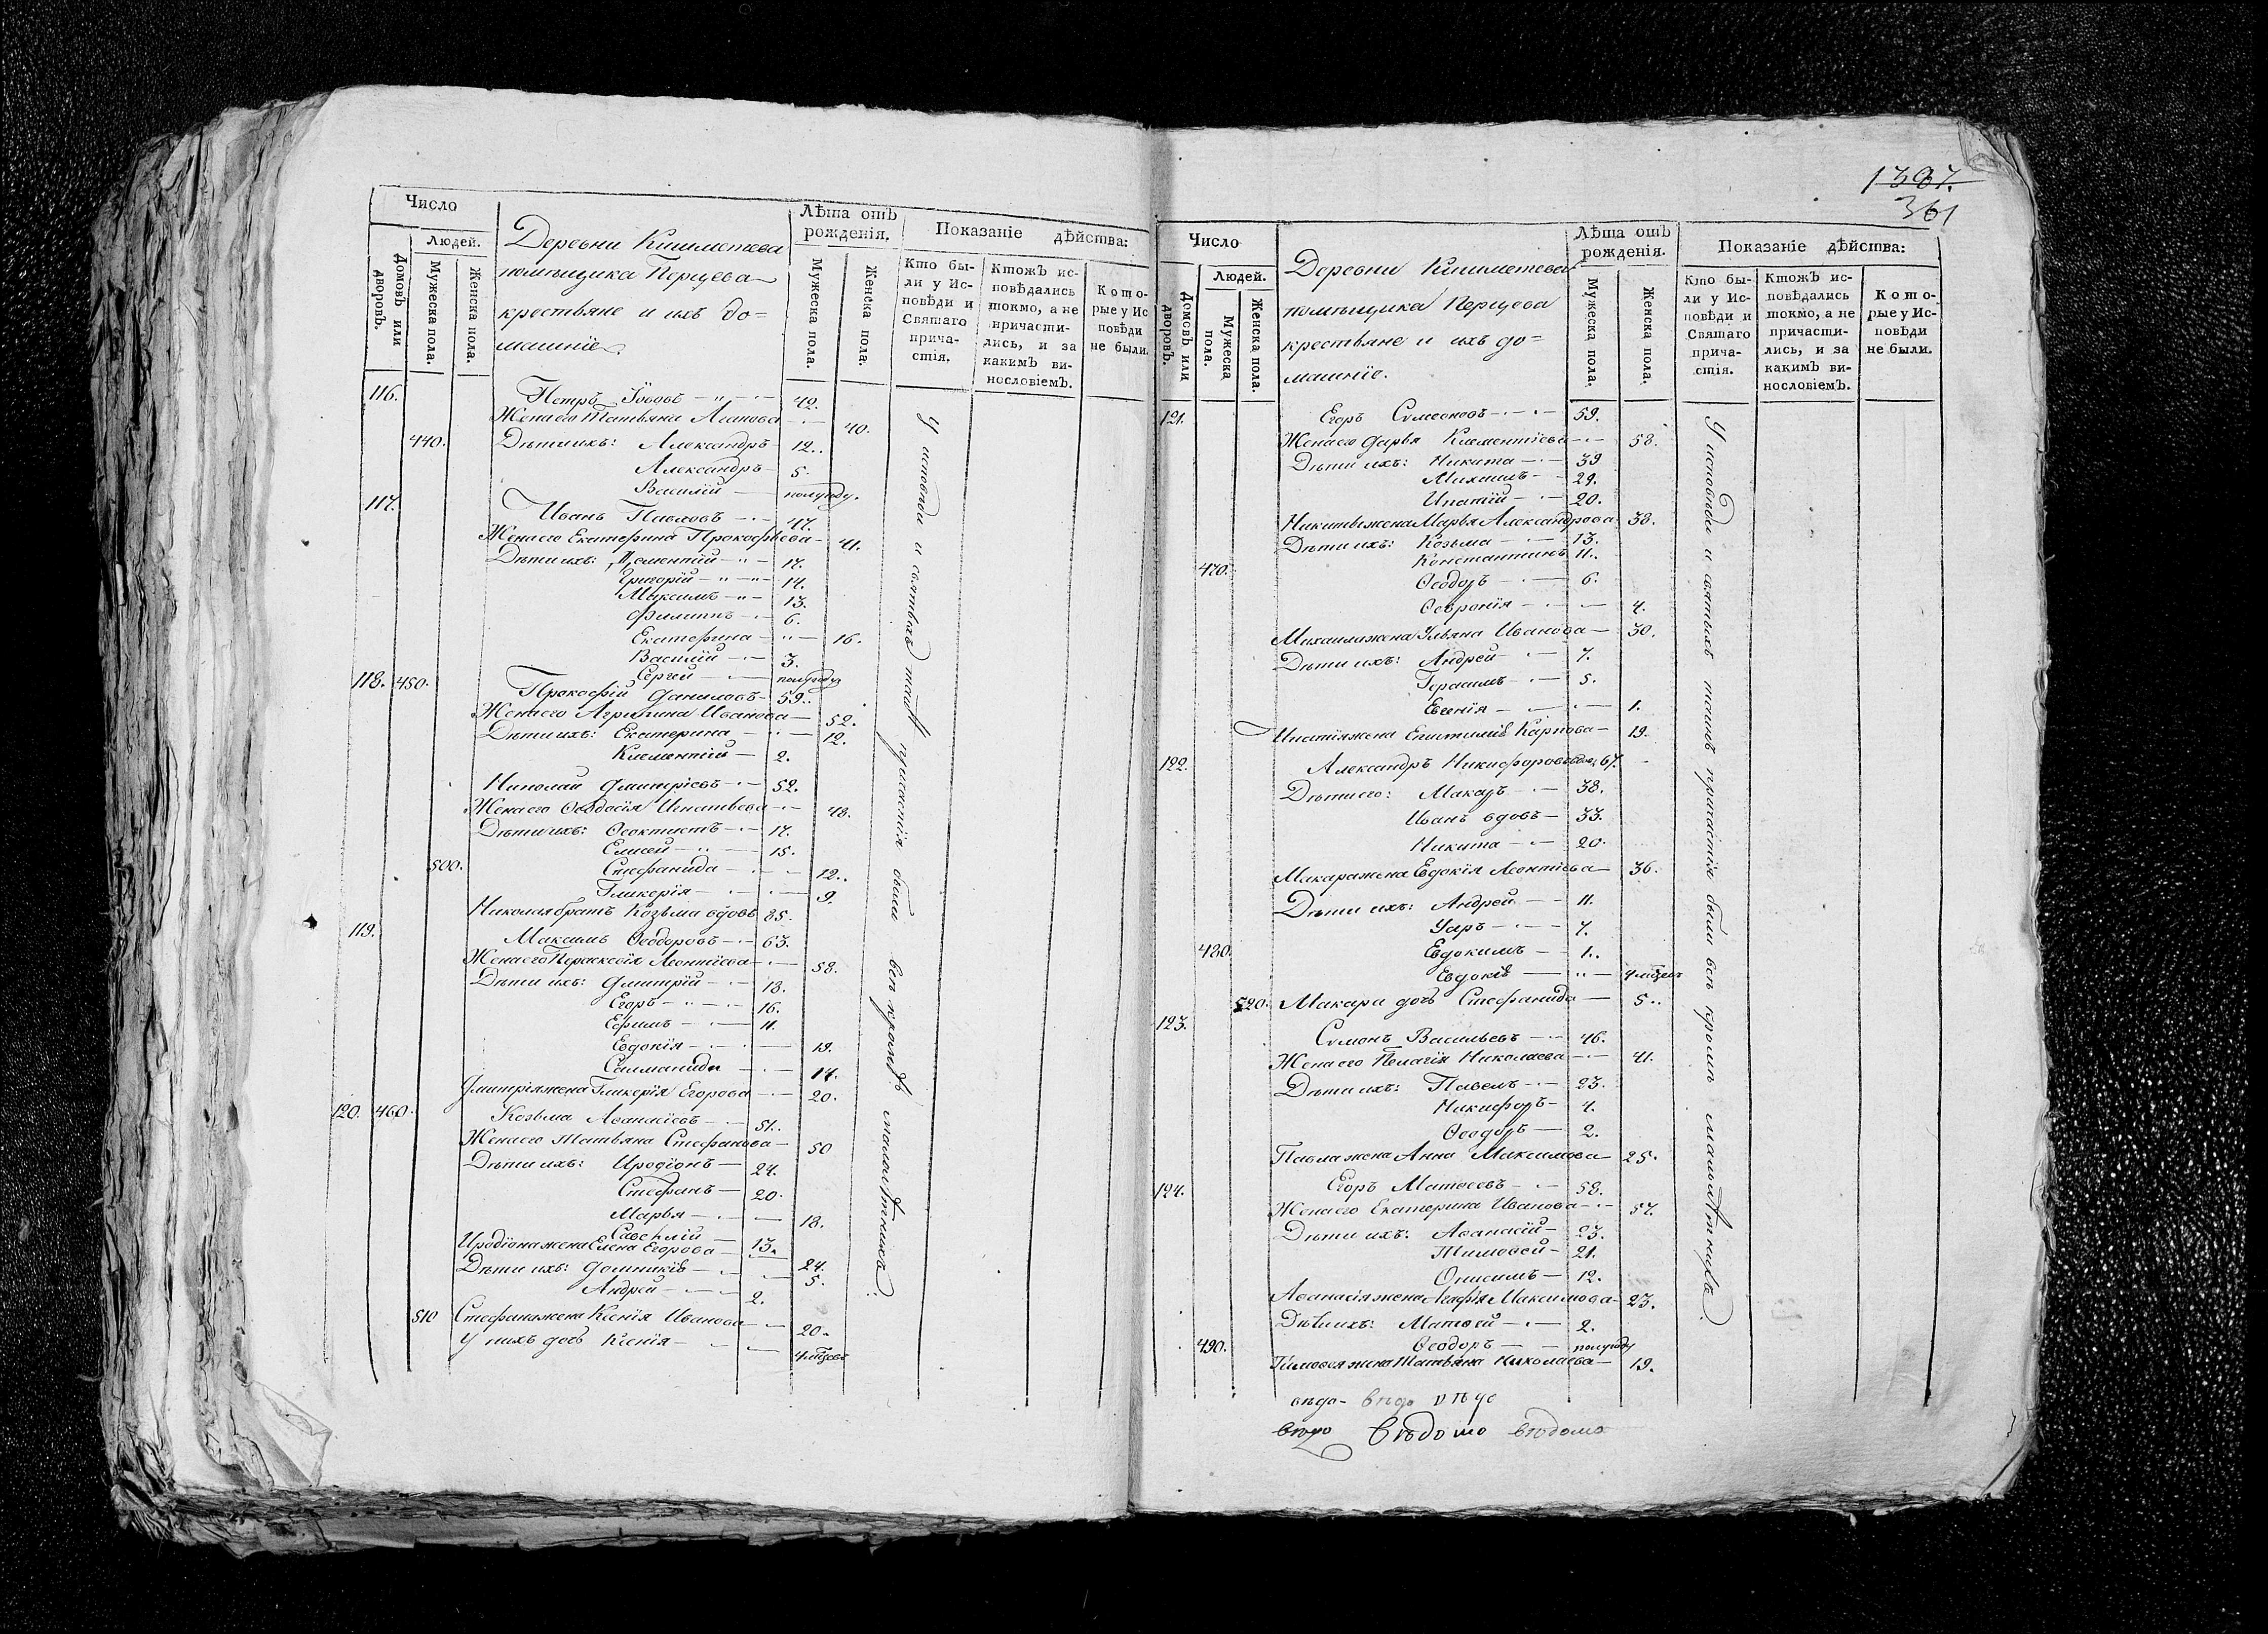 Число
Людей.
Домовъ или дворовъ.
Мужеска пола.
Женска пола.
Деревни Кишметева
помѣщика Перцева
крестьяне и ихъ до=
машніе.
Лѣта отъ рожденія.
Мужеска пола.
Женска пола.
Показаніе дѣйства:
Кто были у Исповѣди и Святаго причастія.
Ктожъ исповѣдались токмо, а не причастились, и за какимъ винословіемъ.
Которые у Исповѣди не были.
116. Петръ 42.
Жена его Татьяна 40.
440. Дѣти ихъ: Александръ 12.
Александръ 5.
Василій полугоду.
117. Иванъ Павловъ 47.
Жена его Екатерина Прокофьева 41.
Дѣти ихъ: 17.
Григорій 14.
Максимъ 13.
Филиппъ 6.
Екатерина 16.
Василій 3.
Сергей полугоду
118. 450. Прокофій Даниловъ 59.
Жена его Агрипина Иванова 52.
Дѣти ихъ: Екатерина 12.
Климентій 2.
Николай Дмитріевъ 52.
Жена его Ѳеодосія Игнатьева 48.
Дѣти ихъ: Ѳеоктистъ 17.
Елисей 15.
500. Стефанида 12.
Гликерія 9.
Николая братъ Козьма вдовъ 85.
119. Максимъ Ѳеодоровъ 63.
Жена его Параскевія Леонтіева 58.
Дѣти ихъ: Дмитрій 18.
Егоръ 16.
Ефимъ 11.
Евдокія 19.
Саламанида 14.
Дмитрія жена Гликерія Егорова 20.
120. 460. Козьма Аѳанасіевъ 51.
Жена его Татьяна Стефанова 50
Дѣти ихъ: Иродіонъ 24.
Стефанъ 20.
Марья 18.
Савелій 13.
Иродіона жена Елена Егорова 24.
Дѣти ихъ: Домникія 5.
Андрей 2.
510 Стефана жена Ксенія Иванова 20.
У нихъ дочь Ксенія 4 мѣсяцевъ
У исповѣди и святыхъ таинъ причастія были всѣ кромѣ малолѣтнихъ.
1387.
361
Число
Людей.
Домовъ или дворовъ.
Мужеска пола.
Женска пола.
Деревни Кишметева
помѣщика Перцева
крестьяне и ихъ до=
машніе.
Лѣта отъ рожденія.
Мужеска пола.
Женска пола.
Показаніе дѣйства:
Кто были у Исповѣди и Святаго причастія.
Ктожъ исповѣдались токмо, а не причастились, и за какимъ винословіемъ.
Которые у Исповѣди не были.
121. Егоръ Сѵмеоновъ 59.
Жена его Дарья Климентіева 58.
Дѣти ихъ: Никита 39
Михаилъ 29.
Ипатій 20.
Никиты жена Марья Александрова 38.
Дѣти ихъ: Козьма 13.
Константинъ 11.
470. Ѳеодоръ 6.
Ѳевронія 4.
Михаила жена Ульяна Иванова 30.
Дѣти ихъ: Андрей 7.
Герасимъ 5.
Евгенія 1.
Ипатія жена Епистимія Карпова 19.
122. Александръ Никифоровъ вдовъ 67.
Дѣти его: Макаръ 38.
Иванъ вдовъ 33.
Никита 20.
Макара жена Евдокія Леонтіева 36.
Дѣти ихъ: Андрей 11.
Уаръ 7.
480. Евдокимъ 1.
Евдокія 4 мѣсяцевъ
520. Макара дочь Стефанида 5.
123. Сѵмонъ Васильевъ 46.
Жена его Пелагія Николаева 41.
Дѣти ихъ: Павелъ 23.
Никифоръ 4.
Ѳеодоръ 2.
Павла жена Анна Максимова 25.
124. Егоръ Матвеевъ 58.
Жена его Екатерина Иванова 57.
Дѣти ихъ: Аѳанасій 23.
Тимоѳей 21.
Онисимъ 12.
Аѳанасія жена Агафія Максимова 23.
Дѣти ихъ: Матвей 2.
490. Ѳеодоръ полугоду
Тимоѳея жена Татьяна Николаева 19.
У исповѣди и святыхъ таинъ причастія были всѣ кромѣ малолѣтнихъ.
вѣдо- вѣдо
Вѣдомо вѣдомо